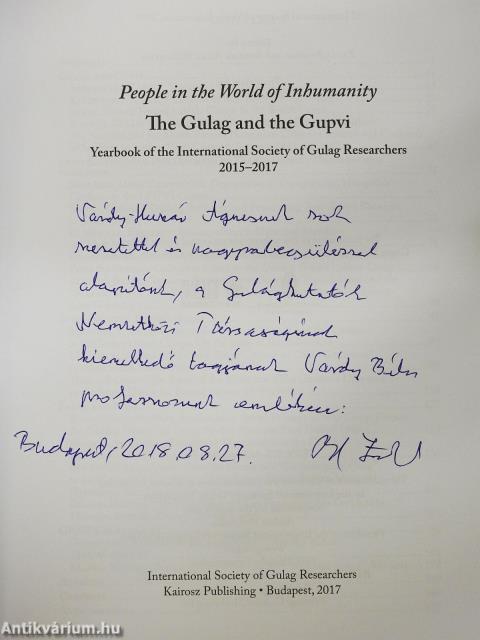 People in the World of Inhumanity
The Gulag and the Gupvi
Yearbook of the International Society of Gulag Researchers
2015–2017
Várdy-Huszár Ágnesnek sok
szeretettel és nagyrabecsüléssel
a Gulágkutatók
Nemzetközi Társaságának
kiemelkedő tagjának Várdy Béla
professzornak emlékére:
Budapest, 2018.08.27.
International Society of Gulag Researchers
Kairosz Publishing • Budapest, 2017
Antikvárium.hu